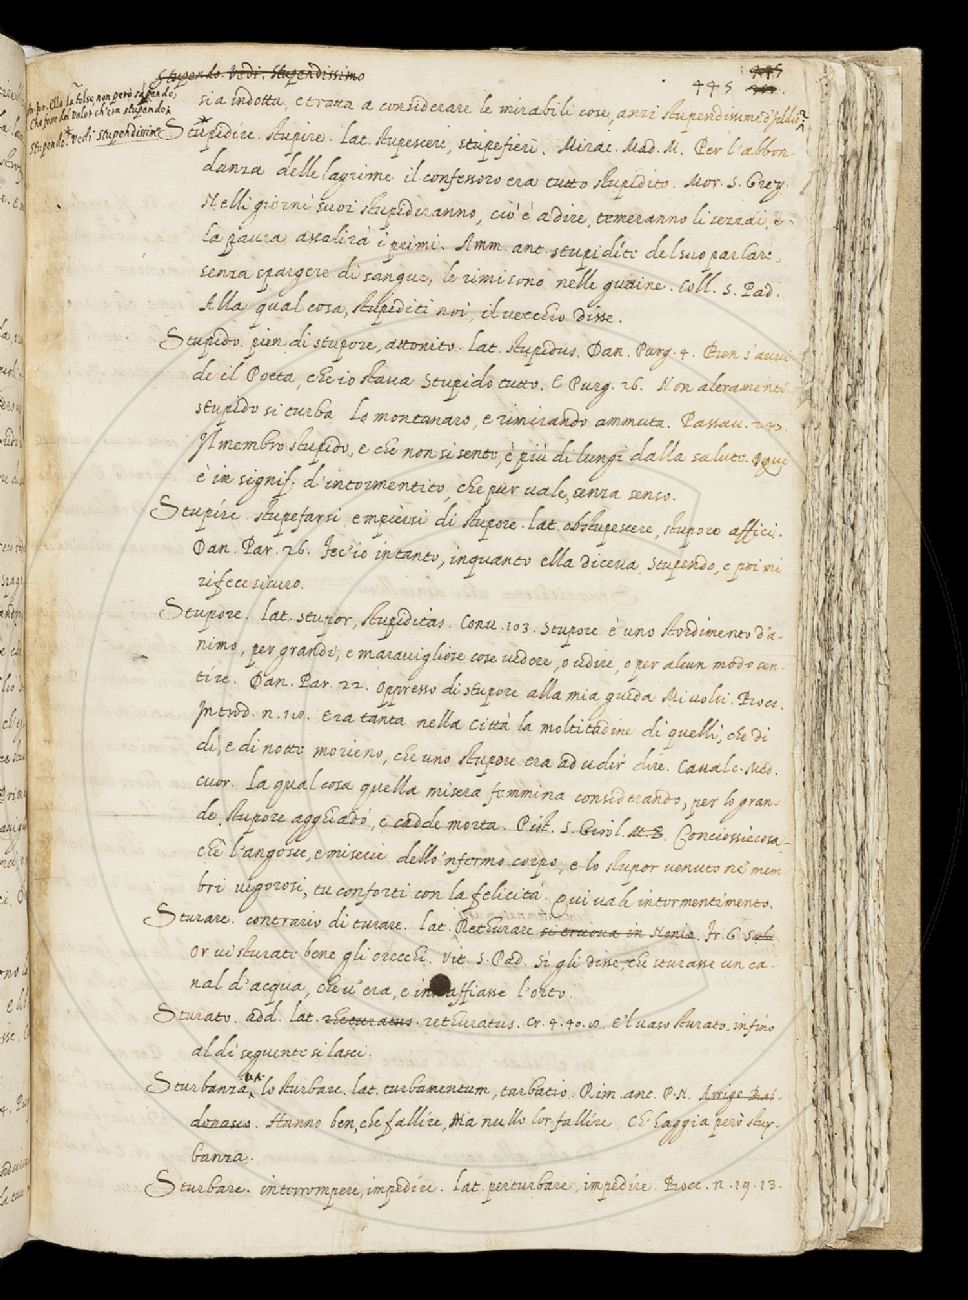 Stupendo. Vedi. Stupendissimo
445
In pr. Ella fa false, non però sapendo;
Che fore del valor ch'era stupendo;
Stupendo. vedi stupendissimo
sia indotta, e tratta a considerare le mirabili cose, anzi stupendissime d'Iddio
Stupidire. stupire. Lat. stupescere, stupefieri. Mirac. Mad. M. Per l'abbon-
danza delle lagrime il confessoro era tutto stupidito. Mor. S. Greg.
Nelli giorni suoi stupideranno, ciò è a dire, temeranno li sezzai, e
la paura assalirà i primi. Amm. ant. stupidíte del suo parlare,
senza spargere di sangue, le rimisono nelle guaine. Coll. S. Pad.
Alla qual cosa, stupiditi noi, il vecchio disse.
Stupido. pien di stupore, attonito. Lat. stupidus. Dan. Purg. 4. Ben s'avvi
de il Poeta, che io stava stupido tutto. E Purg. 26. Non altramenti
stupido si turba Lo montanaro, e rimirando ammuta. Passav. 243.
Il membro stupido, e che non si sente, è più di lungi dalla salute. E qui
è in signif. d'intormentito, che pur vale, senza senso.
Stupíre. stupefarsi, empiersi di stupore. lat. obstupescere, stupore affici.
Dan. Par. 26. Fec'io in tanto, in quanto ella diceva, Stupendo, e poi mi
rifece sicuro.
Stupore. lat. stupor, stupiditas. Conv. 103. Stupore è uno stordimento d'a-
nimo, per grandi, e maravigliose cose vedere, o udire, o per alcun modo sen-
tire. Dan. Par. 22. Oppresso di stupore alla mia guida Mi volsi. Bocc.
Introd. n. 20. Era tanta nella Città la moltitudine di quelli, che di
dì, e di notte morieno, che uno stupore era ad udir dire. Cavalc. Med.
cuor. La qual cosa quella misera femmina considerando, per lo gran-
de stupore agghiadò, e cadde morta. Pist. S. Girol. Conciossiecosa-
chè l'angosce, e miserie dello 'nfermo corpo, e lo stupor venuto ne' mem-
bri vigorosi, tu conforti con la felicità. Qui vale intormentimento.
Sturare. contrario di turare. lat. Rethurare si truova in Nonio. Fr. G. Salv.
Or vi sturate bene gli orecchi. Vit. S. Pad. Sì gli disse, che sturasse un ca-
nal d'acqua, che v'era, e innaffiasse l'orto.
Sturato. add. lat. recturatus. rethuratus. Cr. 4. 40. 10. E 'l vaso sturato, infino
al dì seguente si lasci.
Sturbanza. lo sturbare. lat. turbamentum, turbatio. Rim. ant. P. N. Arrigo Bal-
donasco. Hanno ben, che fallire, Ma nullo lor fallire, Ch'haggia però stur-
banza.
Sturbare. interrompere, impedire. lat. perturbare, impedire. Bocc. n. 19. 13.